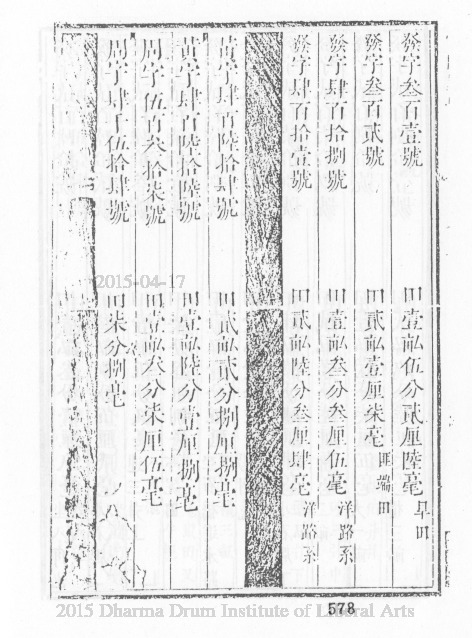 發字叁百壹號 田壹畝伍分貳厘陸毫 旱田
發字叁百貳號 田貳畝壹厘柒毫 匪端田
發字肆百拾捌號 田壹畝叁分叁厘伍毫 洋路系
發字肆百拾壹號 田貳畝陸分叁厘肆毫 洋路系
黃字肆百陸拾肆號 田貳畝貳分捌厘捌毫
黃字肆百陸拾陸號 田壹畝陸分壹厘捌毫
周字伍百叁拾柒號 田壹畝叁分柒厘伍毫
周字肆千伍拾肆號 田柒分捌毫
2015-04-17
578
2015 Dharma Drum Institute of Liberal Arts